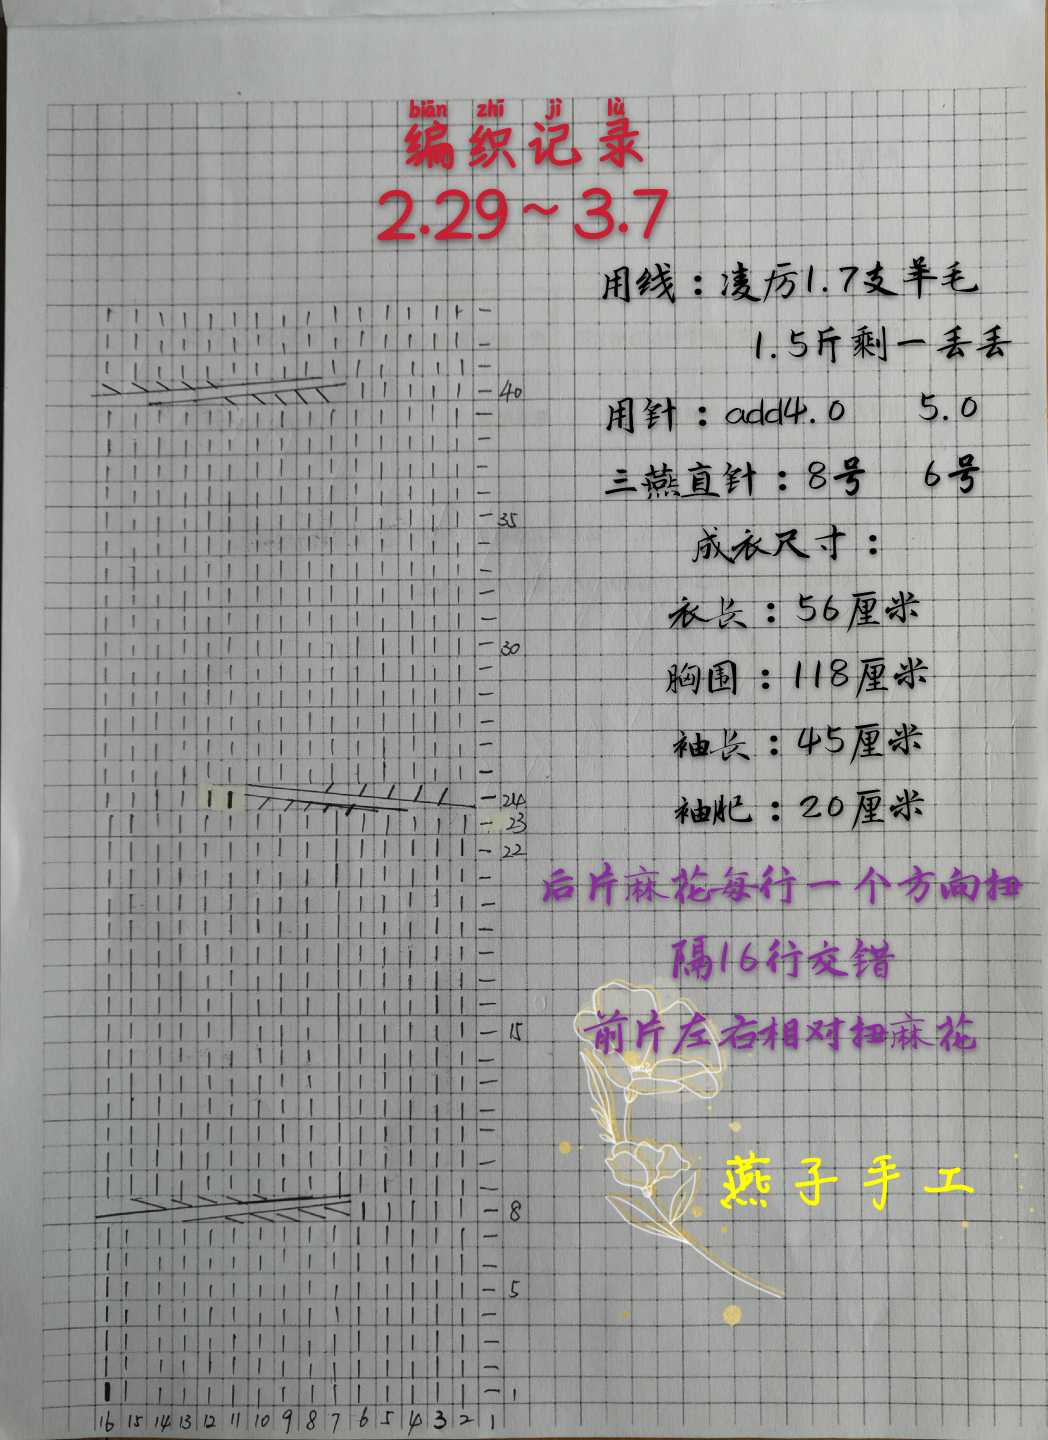 biān zhī jì lù
编织记录
2.29~3.7
用线：凌厉1.7支羊毛
1.5斤剩一丢丢
40
用针：add4.0 5.0
三燕直针：8号 6号
35
成衣尺寸：
衣长：56厘米
30
胸围：118厘米
袖长：45厘米
24
袖肥：20厘米
23
22
后片麻花每行一个方向扭
隔16行交错
15
前片左右相对扭麻花
燕子手工
8
5
1
16 15 14 13 12 11 10 9 8 7 6 5 4 3 2 1